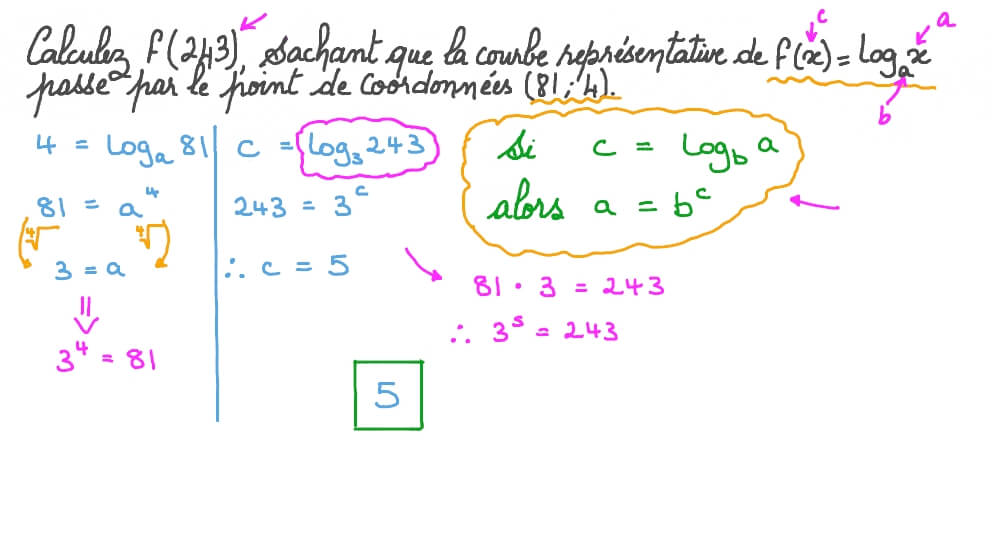 Calculez f(243), sachant que la courbe représentative de f(x) = logₐx
passe par le point de coordonnées (81 ; 4).
c
a
b
4 = logₐ 81
81 = a⁴
∜ ∜
3 = a
3⁴ = 81
c = log₃ 243
243 = 3ᶜ
∴ c = 5
Si c = log_b a
alors a = bᶜ
81 · 3 = 243
∴ 3⁵ = 243
5